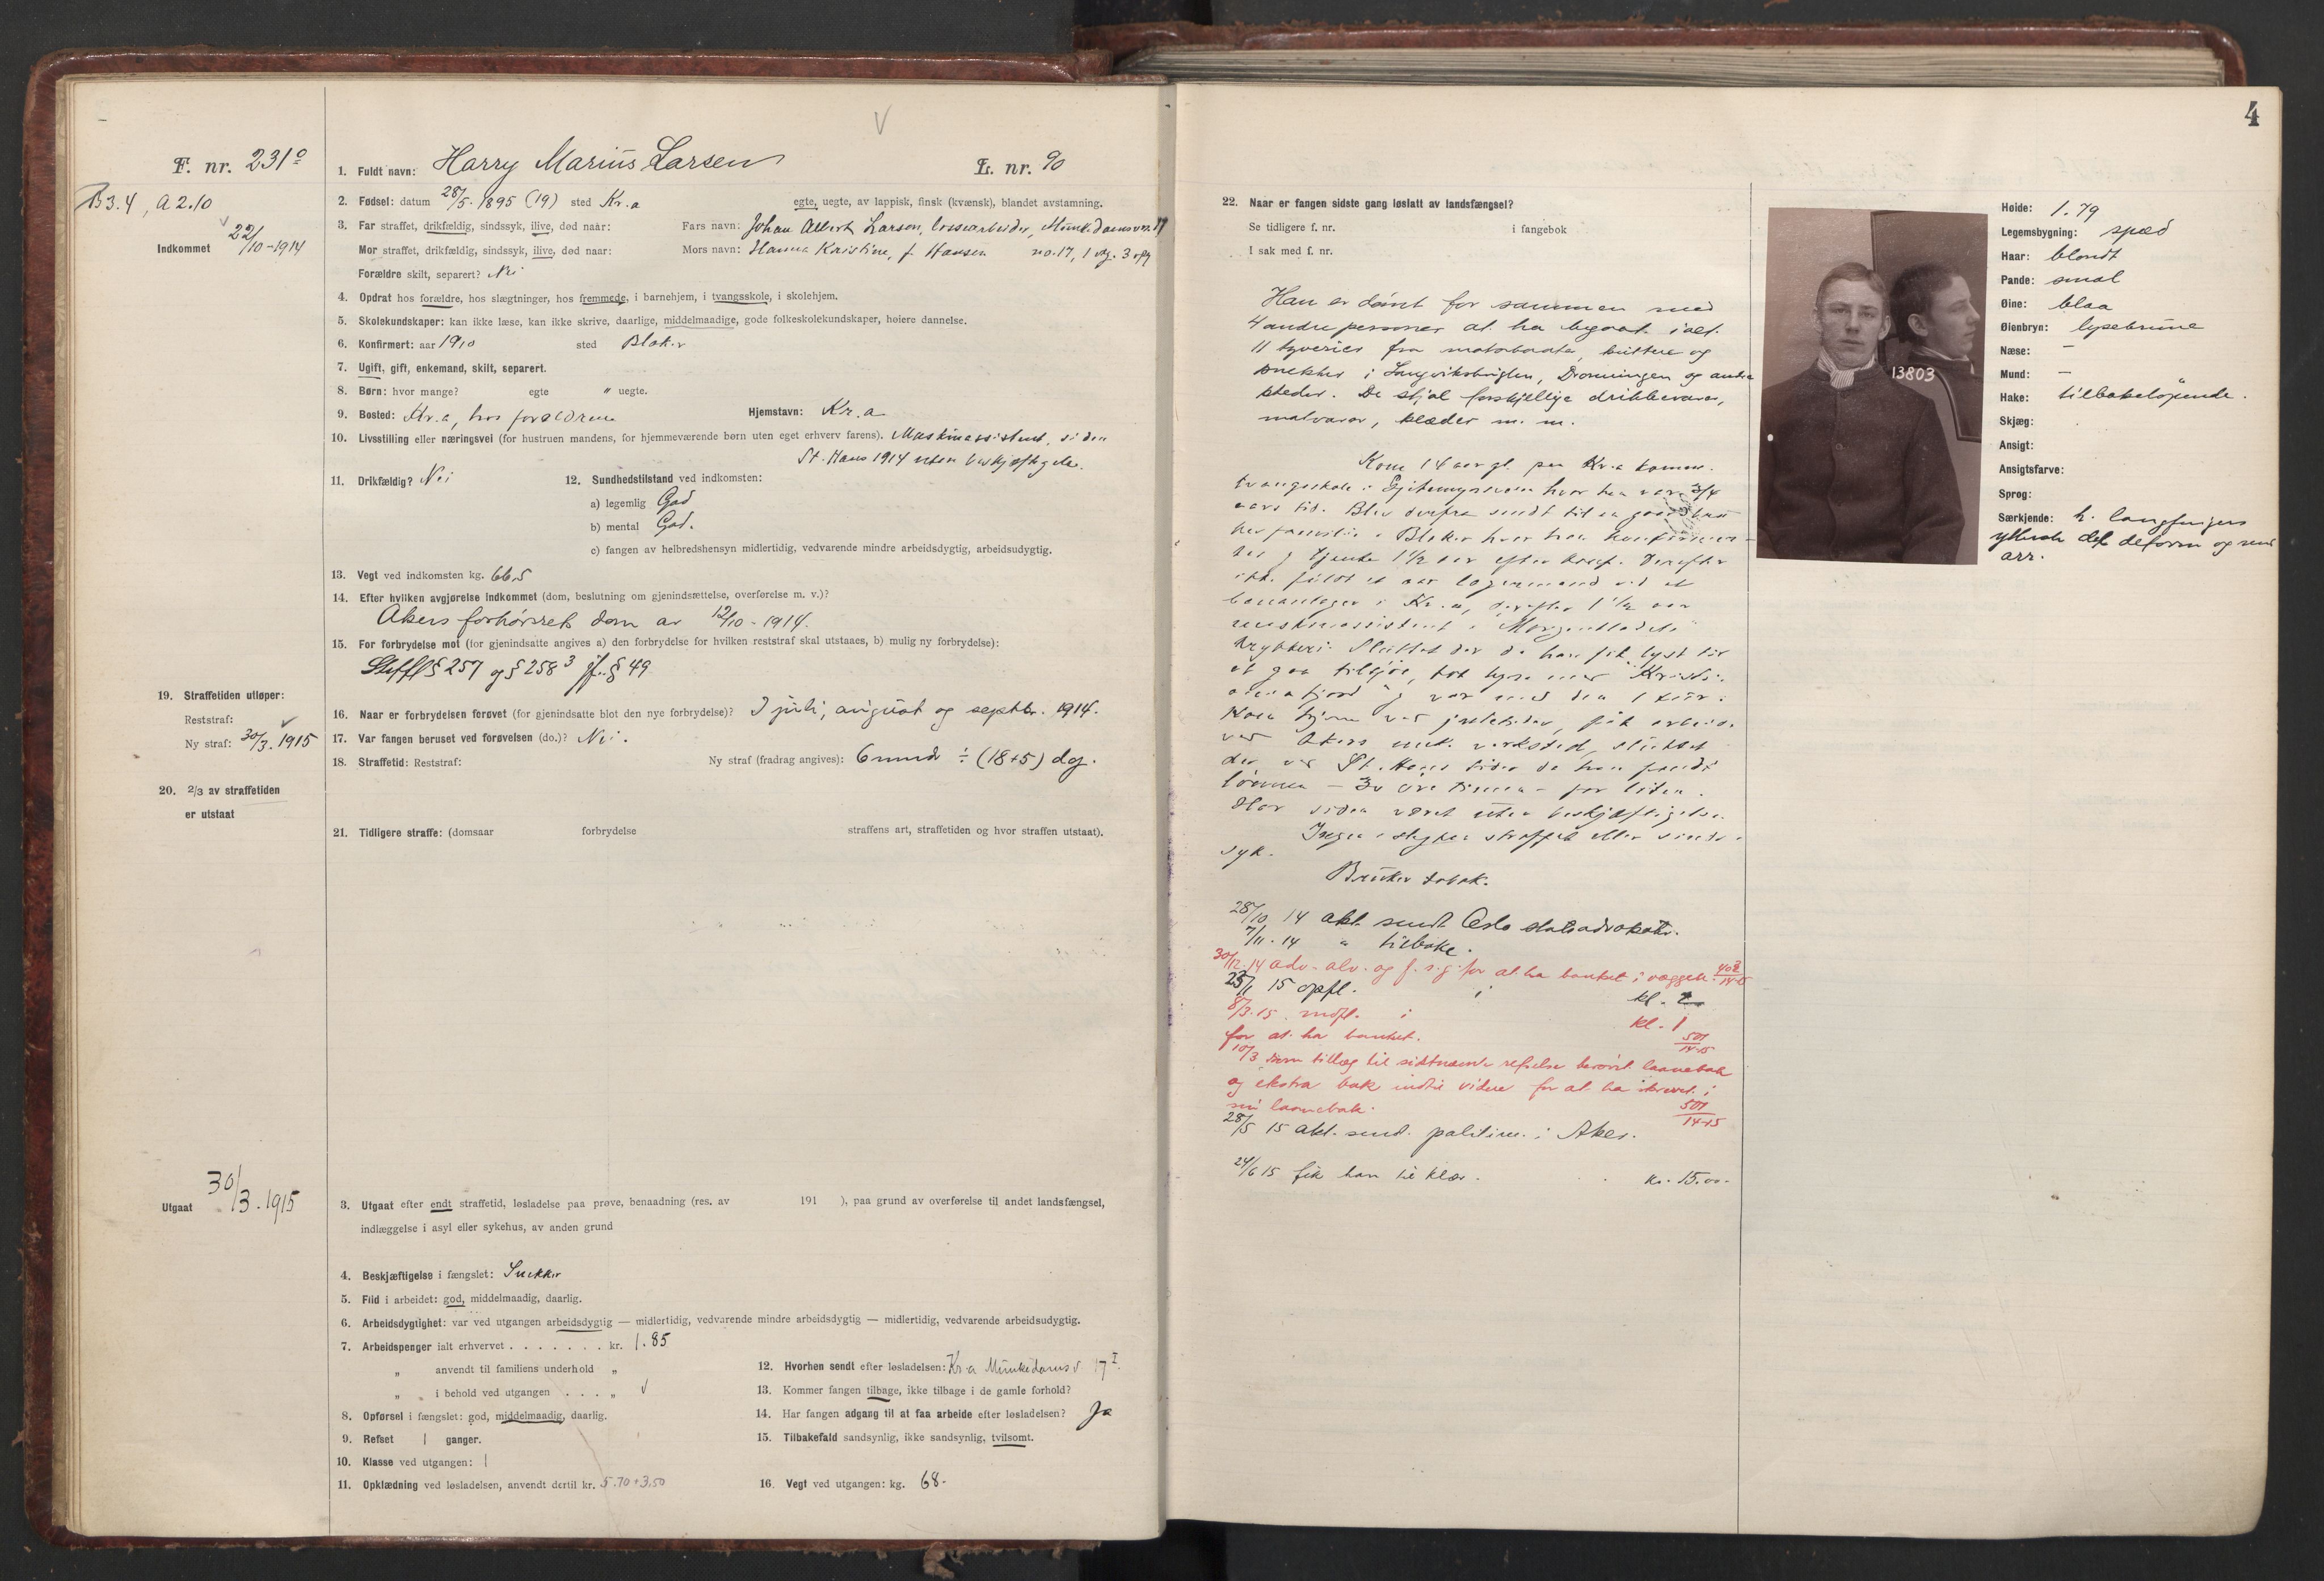 4
F. nr. 231º
B3.4, A2.10
Indkommet 22/10-1914
1. Fuldt navn: Harry Marius Larsen L. nr. 90
2. Fødsel: datum 28/5.1895 (19) sted Kr.a egte, uegte, av lappisk, finsk (kvænsk), blandet avstamning.
3. Far straffet, drikfældig, sindssyk, ilive, død naar: Fars navn: Johan Albert Larsen, lossearbeider, Munkedamsvn 17
Mor straffet, drikfældig, sindssyk, ilive, død naar: Mors navn: Hanna Kristine, f. Hansen no. 17, 1 etg. 3 opg
Forældre skilt, separert? Nei
4. Opdrat hos forældre, hos slægtninger, hos fremmede, i barnehjem, i tvangsskole, i skolehjem.
5. Skolekundskaper: kan ikke læse, kan ikke skrive, daarlige, middelmaadige, gode folkeskolekundskaper, høiere dannelse.
6. Konfirmert: aar 1910 sted Blaker
7. Ugift, gift, enkemand, skilt, separert.
8. Børn: hvor mange? egte " uegte.
9. Bosted: Kr.a, hos forældrene Hjemstavn: Kr.a
10. Livsstilling eller næringsvei (for hustruen mandens, for hjemmeværende børn uten eget erhverv farens). Maskinassistent, siden
St. Hans 1914 uten beskjæftigelse.
11. Drikfældig? Nei 12. Sundhedstilstand ved indkomsten:
a) legemlig God
b) mental God.
c) fangen av helbredshensyn midlertidig, vedvarende mindre arbeidsdygtig, arbeidsudygtig.
13. Vegt ved indkomsten kg. 66.5
14. Efter hvilken avgjørelse indkommet (dom, beslutning om gjenindsættelse, overførelse m. v.)?
Akers forhørsrets dom av 12/10-1914.
15. For forbrydelse mot (for gjenindsatte angives a) den forbrydelse for hvilken reststraf skal utstaaes, b) mulig ny forbrydelse):
Strfl § 257 og § 258³ jf. § 49
16. Naar er forbrydelsen forøvet (for gjenindsatte blot den nye forbrydelse)? I juli, august og septbr. 1914.
17. Var fangen beruset ved forøvelsen (do.)? Nei.
18. Straffetid: Reststraf: Ny straf (fradrag angives): 6 mndr ÷ (18+5) dg.
19. Straffetiden utløper:
Reststraf:
Ny straf: 30/3.1915
20. 2/3 av straffetiden
er utstaat
21. Tidligere straffe: (domsaar forbrydelse straffens art, straffetiden og hvor straffen utstaat).
Utgaat 30/3.1915
3. Utgaat efter endt straffetid, løsladelse paa prøve, benaadning (res. av 191 ), paa grund av overførelse til andet landsfængsel,
indlæggelse i asyl eller sykehus, av anden grund
4. Beskjæftigelse i fængslet: Snekker
5. Flid i arbeidet: god, middelmaadig, daarlig.
6. Arbeidsdygtighet: var ved utgangen arbeidsdygtig — midlertidig, vedvarende mindre arbeidsdygtig — midlertidig, vedvarende arbeidsudygtig.
7. Arbeidspenger ialt erhvervet . . . . . . . kr. 1.85
„ anvendt til familiens underhold „
„ i behold ved utgangen . . . . „
8. Opførsel i fængslet: god, middelmaadig, daarlig.
9. Refset 1 ganger.
10. Klasse ved utgangen: 1
11. Opklædning ved løsladelsen, anvendt dertil kr. 5.70+3.50
12. Hvorhen sendt efter løsladelsen: Kr.a Munkedamsv. 17 I.
13. Kommer fangen tilbage, ikke tilbage i de gamle forhold?
14. Har fangen adgang til at faa arbeide efter løsladelsen? Ja
15. Tilbakefald sandsynlig, ikke sandsynlig, tvilsomt.
16. Vegt ved utgangen: kg. 68.
22. Naar er fangen sidste gang løslatt av landsfængsel?
Se tidligere f. nr. i fangebok
I sak med f. nr.
Han er dømt for sammen med
4 andre personer at ha begaat ialt
11 tyverier fra motorbaater, hytter og
i Langviksbugten, Dronningen og andre
steder. De stjal forskjellige drikkevarer,
matvarer, klæder m. m.
Kom 14 aar gl. paa Kr.a komm.
tvangsskole i hvor han var 3/4
aars tid. Blev derfra sendt til en
familie i Blaker hvor han
og tjente 1½ aar efter konf. Derefter
aar lagermand ved et
i Kr.a, derefter 1½ aar
maskinassistent i "Morgenbladets"
trykkeri. Sluttet der da han fik lyst til
at gaa tilsjøs, tok hyre med "Kristi-
aniafjord" og var med den 1 tur.
Kom hjem ved juletider, fik arbeide
ved Akers mek. verksted, sluttet
der ved St. Hans tider da han fandt
lønnen - 30 øre timen - for liten.
Har siden været uten beskjæftigelse.
Ingen i slegten straffet eller sinds-
syk.
Bruker tobak.
28/10 14 akt. sendt Oslo statsadvokat.
7/11-14 " tilbake.
30/12-14 adv. alv. og f. s. g. for at ha banket i væggen. 402/14-15
25/1 15 opfl. i kl. 2
8/3.15. nedfl. i kl. 1
for at ha banket. 501/14-15
10/3 som tillæg til sidstnævnte refselse berøvet laanebok
og ekstra bok indtil videre for at ha skrevet i
sin laanebok. 501/14-15
28/5 15 akt. sendt politim. i Aker.
24/6 15 fik han til klær. kr. 15.00-
13803
Høide: 1.79
Legemsbygning: spæd
Haar: blondt
Pande: smal
Øine: blaa
Øienbryn: lysebrune
Næse: —
Mund: —
Hake: tilbakeløpende.
Skjæg:
Ansigt:
Ansigtsfarve:
Sprog:
Særkjende: h. langfingers
ytterste del deform og med
arr.